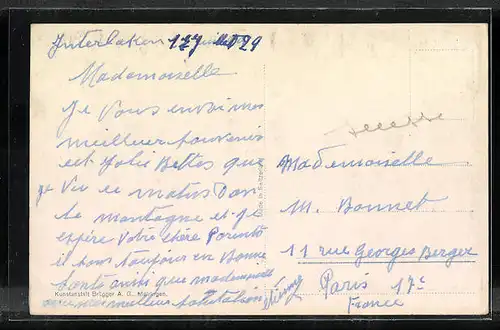 Interlaken 17 juillet 1929
Mademoiselle
Je vous envoi mes
meilleur souvenir
et Jolie Bettes que
Je Vu ce matin Dan
la montagne et Je
espère Votre chère Parents
il sons toujours en Bonne
santé ainsi que mademoiselle
meilleur salutation
Made in Switzerland
Kunstanstalt Brügger A. G., Meiringen.
Mademoiselle
M. Bonnet
11 rue Georges Berger
Paris 17e
France